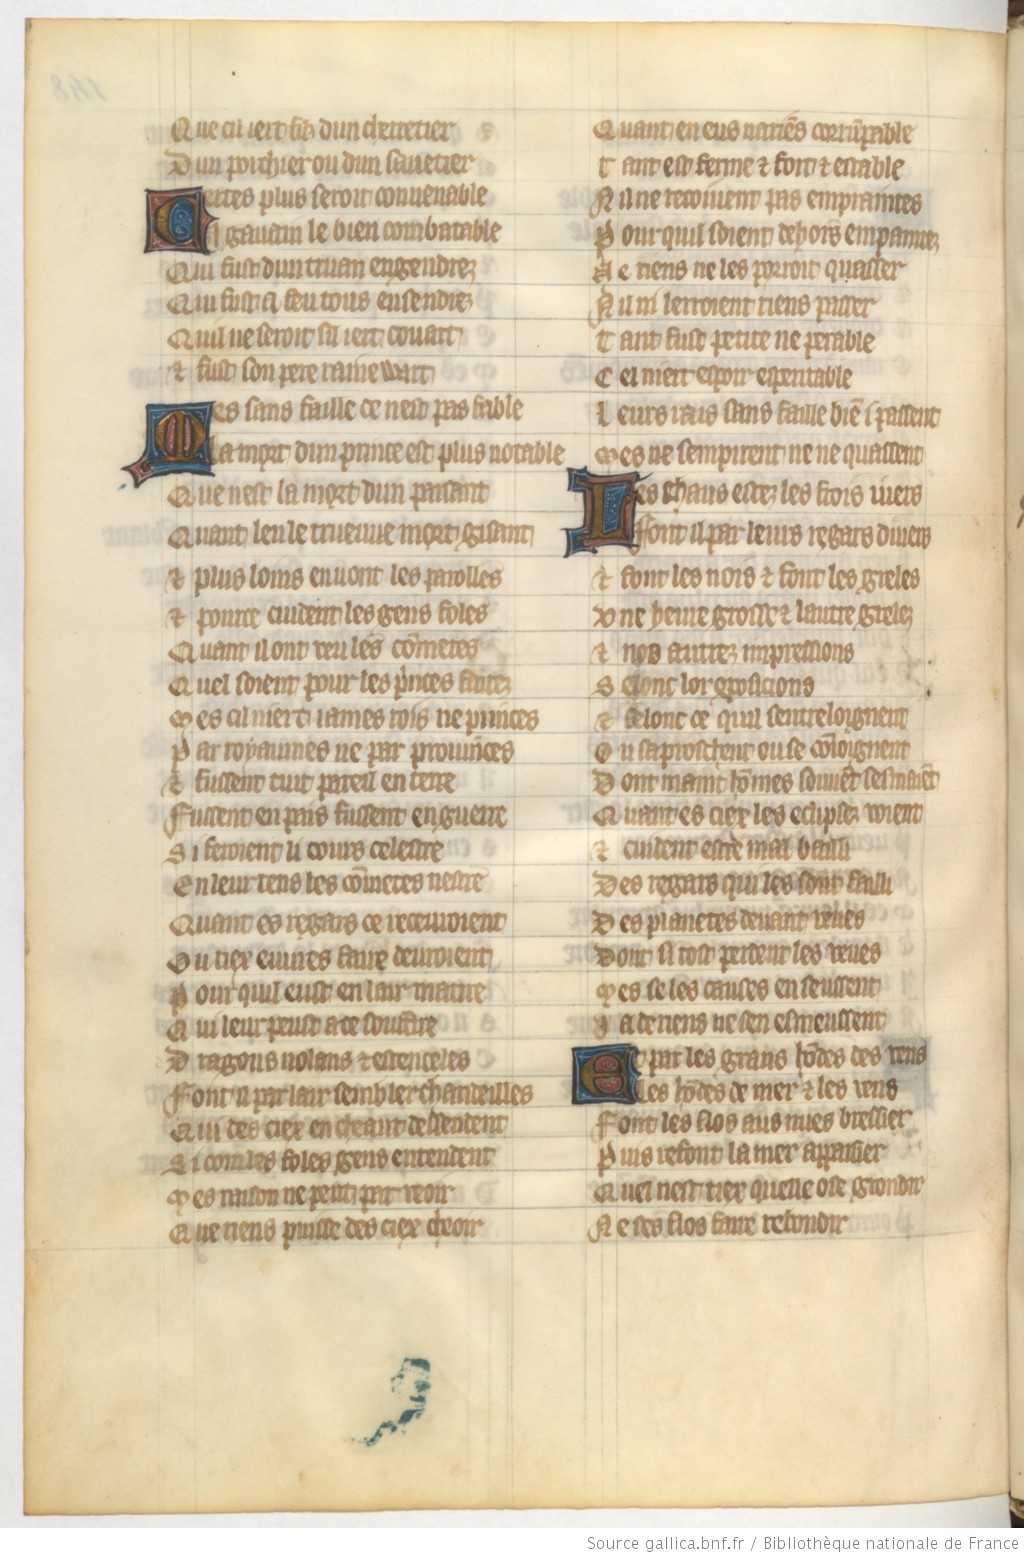 Que cil iert filz dun cherretier
Dun porchier ou dun savetier
Certes plus seroit convenable
A gauvain le bien combatable
Qui fust dun truan engendrez
Qui fust a feu tous ensendrez
Quil ne seroit sil iert couart
⁊ fust son pere rainewart
Mes sans faille ce nest pas fable
La mort dun prince est plus notable
Que nest la mort dun paisant
Quant len le trueuve mort gisant
⁊ plus loins en vont les parolles
⁊ pource cuident les gens foles
Quant il ont veu les cōmetes
Quel soient pour les p̄nces faites
Mes cil niert iames rois ne princes
Par royaumes ne par prouīces
⁊ fussent tuit pareil en terre
Fussent en pais fussent en guerre
Si feroient li cours celestre
En leur tens les cōmetes nestre
Quant es regars ce recevroient
Ou ciex euvres faire devroient
Pour quil eust en lair matire
Qui leur peust a ce souffire
Dragons volans ⁊ estenceles
Font il par lair sembler chandeilles
Qui des ciex en cheant dessendent
Si com les foles gens entendent
Mes raison ne peut par veoir
Que riens puisse des ciex cheoir
Quant en eus nariēs corrūpable
Tant est ferme ⁊ fort ⁊ estable
Nil ne recoivent pas empraintes
Pour quil soient dehors empaintez
Ne riens ne les porroit quasser
Nil ni lerroient riens passer
Tant fust petite ne perable
Cel niert espoir esperitable
Leurs rais sans faille biē i passent
Mes ne sempirent ne ne quassent
Les chaus estez les frois ivers
Font il par leurs regars divers
⁊ font les nois ⁊ font les gresles
Une heure grosse ⁊ lautre greles
⁊ nos autrez impressions
Selonc lor oposicions
⁊ selonc ce quil sentreloignent
Ou saprochent ou se cōioignent
Dont maint hōmes souuēt sesmaiēt
Quant es ciex les eclipsez voient
⁊ cuident estre mal bailli
Des regars qui les sont failli
Des planetes devant veues
Dont si tost perdent les veues
Mes se les causes en seussent
Ja de riens ne sen esmeussent
Et par les grans hōdes des vens
Les hōdes de mer ⁊ les vens
Font les flos aus nues bressier
Puis refont la mer appaisier
Quel nest tiex quelle ose grondir
Ne ses flos faire rebondir
Source gallica.bnf.fr / Bibliothèque nationale de France